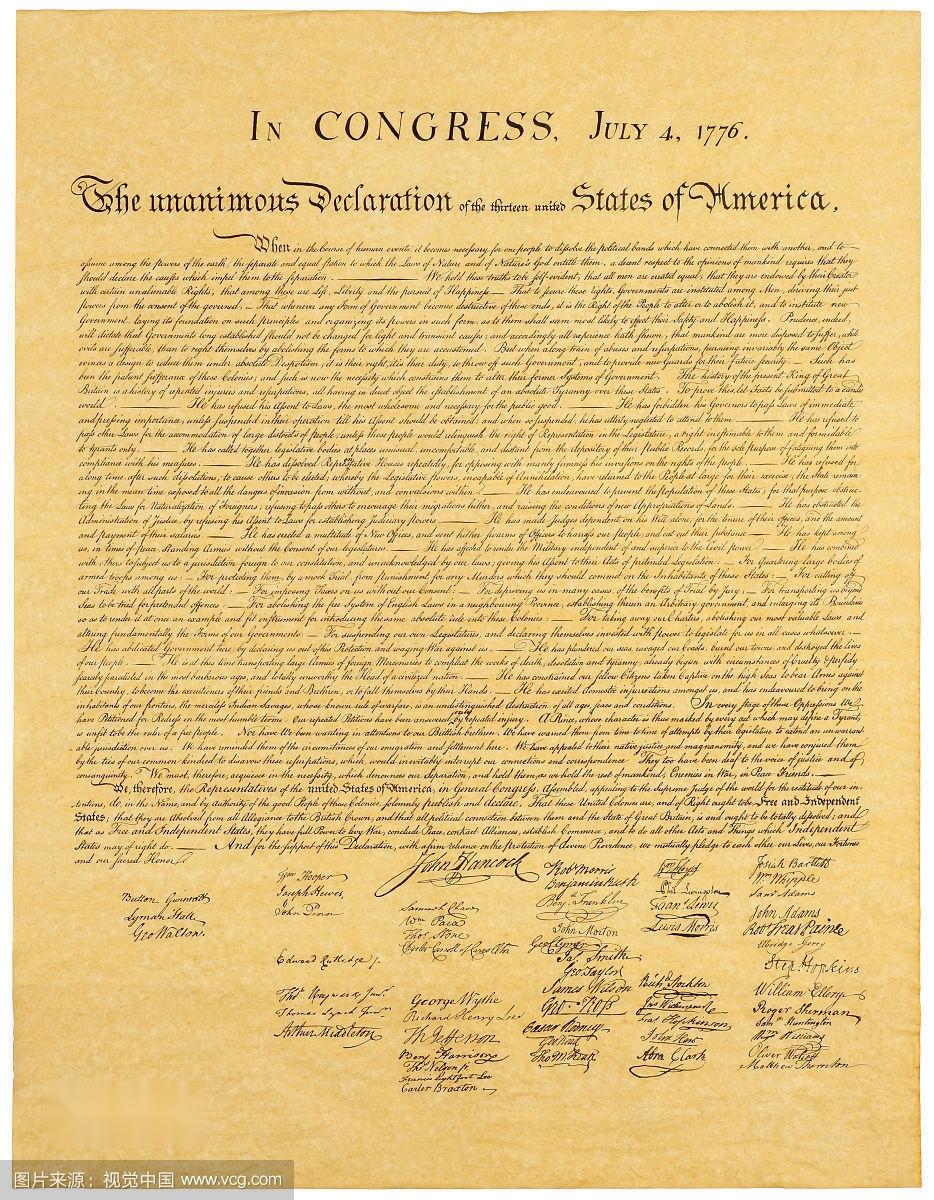 IN CONGRESS, JULY 4, 1776.
The unanimous Declaration of the thirteen united States of America,
When in the Course of human events, it becomes necessary for one people to dissolve the political bands which have connected them with another, and to
assume among the powers of the earth, the separate and equal station to which the Laws of Nature and of Nature's God entitle them, a decent respect to the opinions of mankind requires that they
should declare the causes which impel them to the separation. We hold these truths to be self-evident, that all men are created equal, that they are endowed by their Creator
with certain unalienable Rights, that among these are Life, Liberty and the pursuit of Happiness.— That to secure these rights, Governments are instituted among Men, deriving their just
powers from the consent of the governed,— That whenever any Form of Government becomes destructive of these ends, it is the Right of the People to alter or to abolish it, and to institute new
Government, laying its foundation on such principles and organizing its powers in such form, as to them shall seem most likely to effect their Safety and Happiness. Prudence, indeed,
will dictate that Governments long established should not be changed for light and transient causes; and accordingly all experience hath shewn, that mankind are more disposed to suffer, while
evils are sufferable, than to right themselves by abolishing the forms to which they are accustomed. But when a long train of abuses and usurpations, pursuing invariably the same Object
evinces a design to reduce them under absolute Despotism, it is their right, it is their duty, to throw off such Government, and to provide new Guards for their future security.— Such has
been the patient sufferance of these Colonies; and such is now the necessity which constrains them to alter their former Systems of Government. The history of the present King of Great
Britain is a history of repeated injuries and usurpations, all having in direct object the establishment of an absolute Tyranny over these States. To prove this, let Facts be submitted to a candid
world.— He has refused his Assent to Laws, the most wholesome and necessary for the public good.— He has forbidden his Governors to pass Laws of immediate
and pressing importance, unless suspended in their operation till his Assent should be obtained; and when so suspended, he has utterly neglected to attend to them.— He has refused to
pass other Laws for the accommodation of large districts of people, unless those people would relinquish the right of Representation in the Legislature, a right inestimable to them and formidable
to tyrants only.— He has called together legislative bodies at places unusual, uncomfortable, and distant from the depository of their Public Records, for the sole purpose of fatiguing them into
compliance with his measures.— He has dissolved Representative Houses repeatedly, for opposing with manly firmness his invasions on the rights of the people.— He has refused for
a long time, after such dissolutions, to cause others to be elected; whereby the Legislative powers, incapable of Annihilation, have returned to the People at large for their exercise; the State remain-
ing in the mean time exposed to all the dangers of invasion from without, and convulsions within.— He has endeavoured to prevent the population of these States; for that purpose obstruc-
ting the Laws for Naturalization of Foreigners; refusing to pass others to encourage their migrations hither, and raising the conditions of new Appropriations of Lands.— He has obstructed the
Administration of Justice, by refusing his Assent to Laws for establishing Judiciary powers.— He has made Judges dependent on his Will alone, for the tenure of their offices, and the amount
and payment of their salaries.— He has erected a multitude of New Offices, and sent hither swarms of Officers to harrass our people, and eat out their substance.— He has kept among
us, in times of peace, Standing Armies without the Consent of our legislatures.— He has affected to render the Military independent of and superior to the Civil power.— He has combined
with others to subject us to a jurisdiction foreign to our constitution, and unacknowledged by our laws; giving his Assent to their Acts of pretended Legislation:— For Quartering large bodies of
armed troops among us:— For protecting them, by a mock Trial, from punishment for any Murders which they should commit on the Inhabitants of these States:— For cutting off
our Trade with all parts of the world:— For imposing Taxes on us without our Consent:— For depriving us in many cases, of the benefits of Trial by Jury:— For transporting us beyond
Seas to be tried for pretended offences.— For abolishing the free System of English Laws in a neighbouring Province, establishing therein an Arbitrary government, and enlarging its Boundaries
so as to render it at once an example and fit instrument for introducing the same absolute rule into these Colonies:— For taking away our Charters, abolishing our most valuable Laws, and
altering fundamentally the Forms of our Governments:— For suspending our own Legislatures, and declaring themselves invested with power to legislate for us in all cases whatsoever.—
He has abdicated Government here, by declaring us out of his Protection and waging War against us.— He has plundered our seas, ravaged our Coasts, burnt our towns, and destroyed the lives
of our people.— He is at this time transporting large Armies of foreign Mercenaries to compleat the works of death, desolation and tyranny, already begun with circumstances of Cruelty & perfidy
scarcely paralleled in the most barbarous ages, and totally unworthy the Head of a civilized nation.— He has constrained our fellow Citizens taken Captive on the high Seas to bear Arms against
their Country, to become the executioners of their friends and Brethren, or to fall themselves by their Hands.— He has excited domestic insurrections amongst us, and has endeavoured to bring on the
inhabitants of our frontiers, the merciless Indian Savages, whose known rule of warfare, is an undistinguished destruction of all ages, sexes and conditions. In every stage of these Oppressions We
have Petitioned for Redress in the most humble terms: Our repeated Petitions have been answered only by repeated injury. A Prince, whose character is thus marked by every act which may define a Tyrant,
is unfit to be the ruler of a free people. Nor have We been wanting in attentions to our Brittish brethren. We have warned them from time to time of attempts by their legislature to extend an unwarrant-
able jurisdiction over us. We have reminded them of the circumstances of our emigration and settlement here. We have appealed to their native justice and magnanimity, and we have conjured them
by the ties of our common kindred to disavow these usurpations, which, would inevitably interrupt our connections and correspondence. They too have been deaf to the voice of justice and of
consanguinity. We must, therefore, acquiesce in the necessity, which denounces our Separation, and hold them, as we hold the rest of mankind, Enemies in War, in Peace Friends.—
We, therefore, the Representatives of the united States of America, in General Congress, Assembled, appealing to the Supreme Judge of the world for the rectitude of our in-
tentions, do, in the Name, and by authority of the good People of these Colonies, solemnly publish and declare, That these United Colonies are, and of Right ought to be Free and Independent
States; that they are Absolved from all Allegiance to the British Crown, and that all political connection between them and the State of Great Britain, is and ought to be totally dissolved; and
that as Free and Independent States, they have full Power to levy War, conclude Peace, contract Alliances, establish Commerce, and to do all other Acts and Things which Independent
States may of right do.— And for the support of this Declaration, with a firm reliance on the protection of divine Providence, we mutually pledge to each other our Lives, our Fortunes
and our sacred Honor.
John Hancock
Button Gwinnett
Lyman Hall
Geo Walton.
Wm Hooper
Joseph Hewes,
John Penn
Edward Rutledge /.
Thos Heyward Junr.
Thomas Lynch Junr.
Arthur Middleton
Samuel Chase
Wm Paca
Thos Stone
Charles Carroll of Carrollton
George Wythe
Richard Henry Lee
Th Jefferson
Benj Harrison
Thos Nelson jr.
Francis Lightfoot Lee
Carter Braxton
Robt Morris
Benjamin Rush
Benj. Franklin
John Morton
Geo Clymer
Jas. Smith
Geo. Taylor
James Wilson
Geo. Ross
Caesar Rodney
Geo Read
Tho M:Kean
Wm Floyd
Phil. Livingston
Frans. Lewis
Lewis Morris
Richd. Stockton
Jno Witherspoon
Fras. Hopkinson
John Hart
Abra Clark
Josiah Bartlett
Wm Whipple
Saml Adams
John Adams
Robt Treat Paine
Elbridge Gerry
Step. Hopkins
William Ellery
Roger Sherman
Saml Huntington
Wm Williams
Oliver Wolcott
Matthew Thornton
图片来源：视觉中国 www.vcg.com